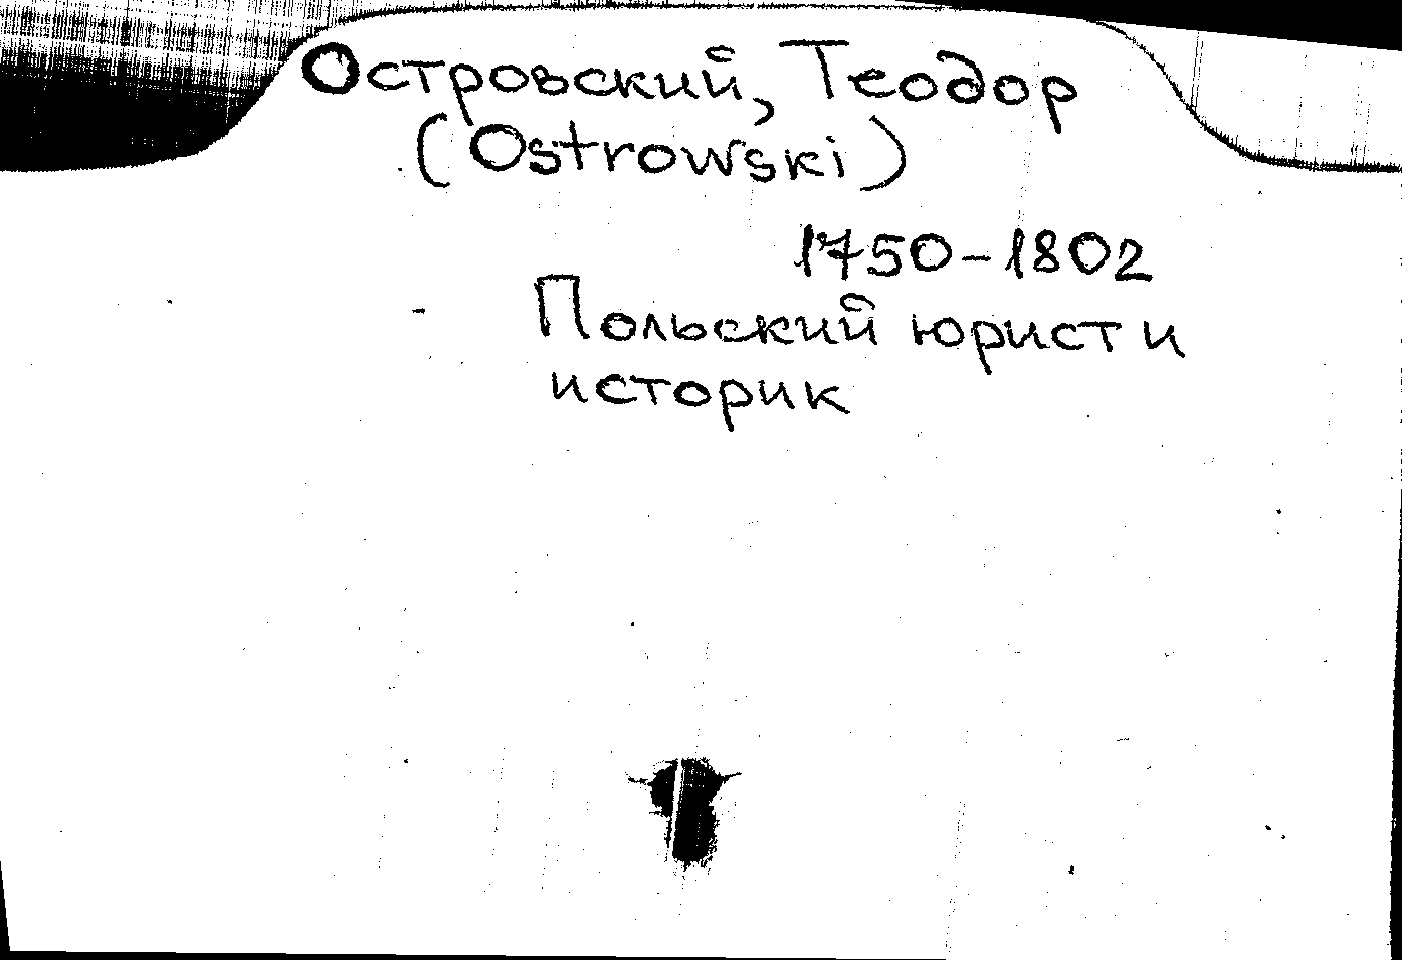 Островский, Теодор
(Ostrowski)
1750-1802
Польский юрист и
историк